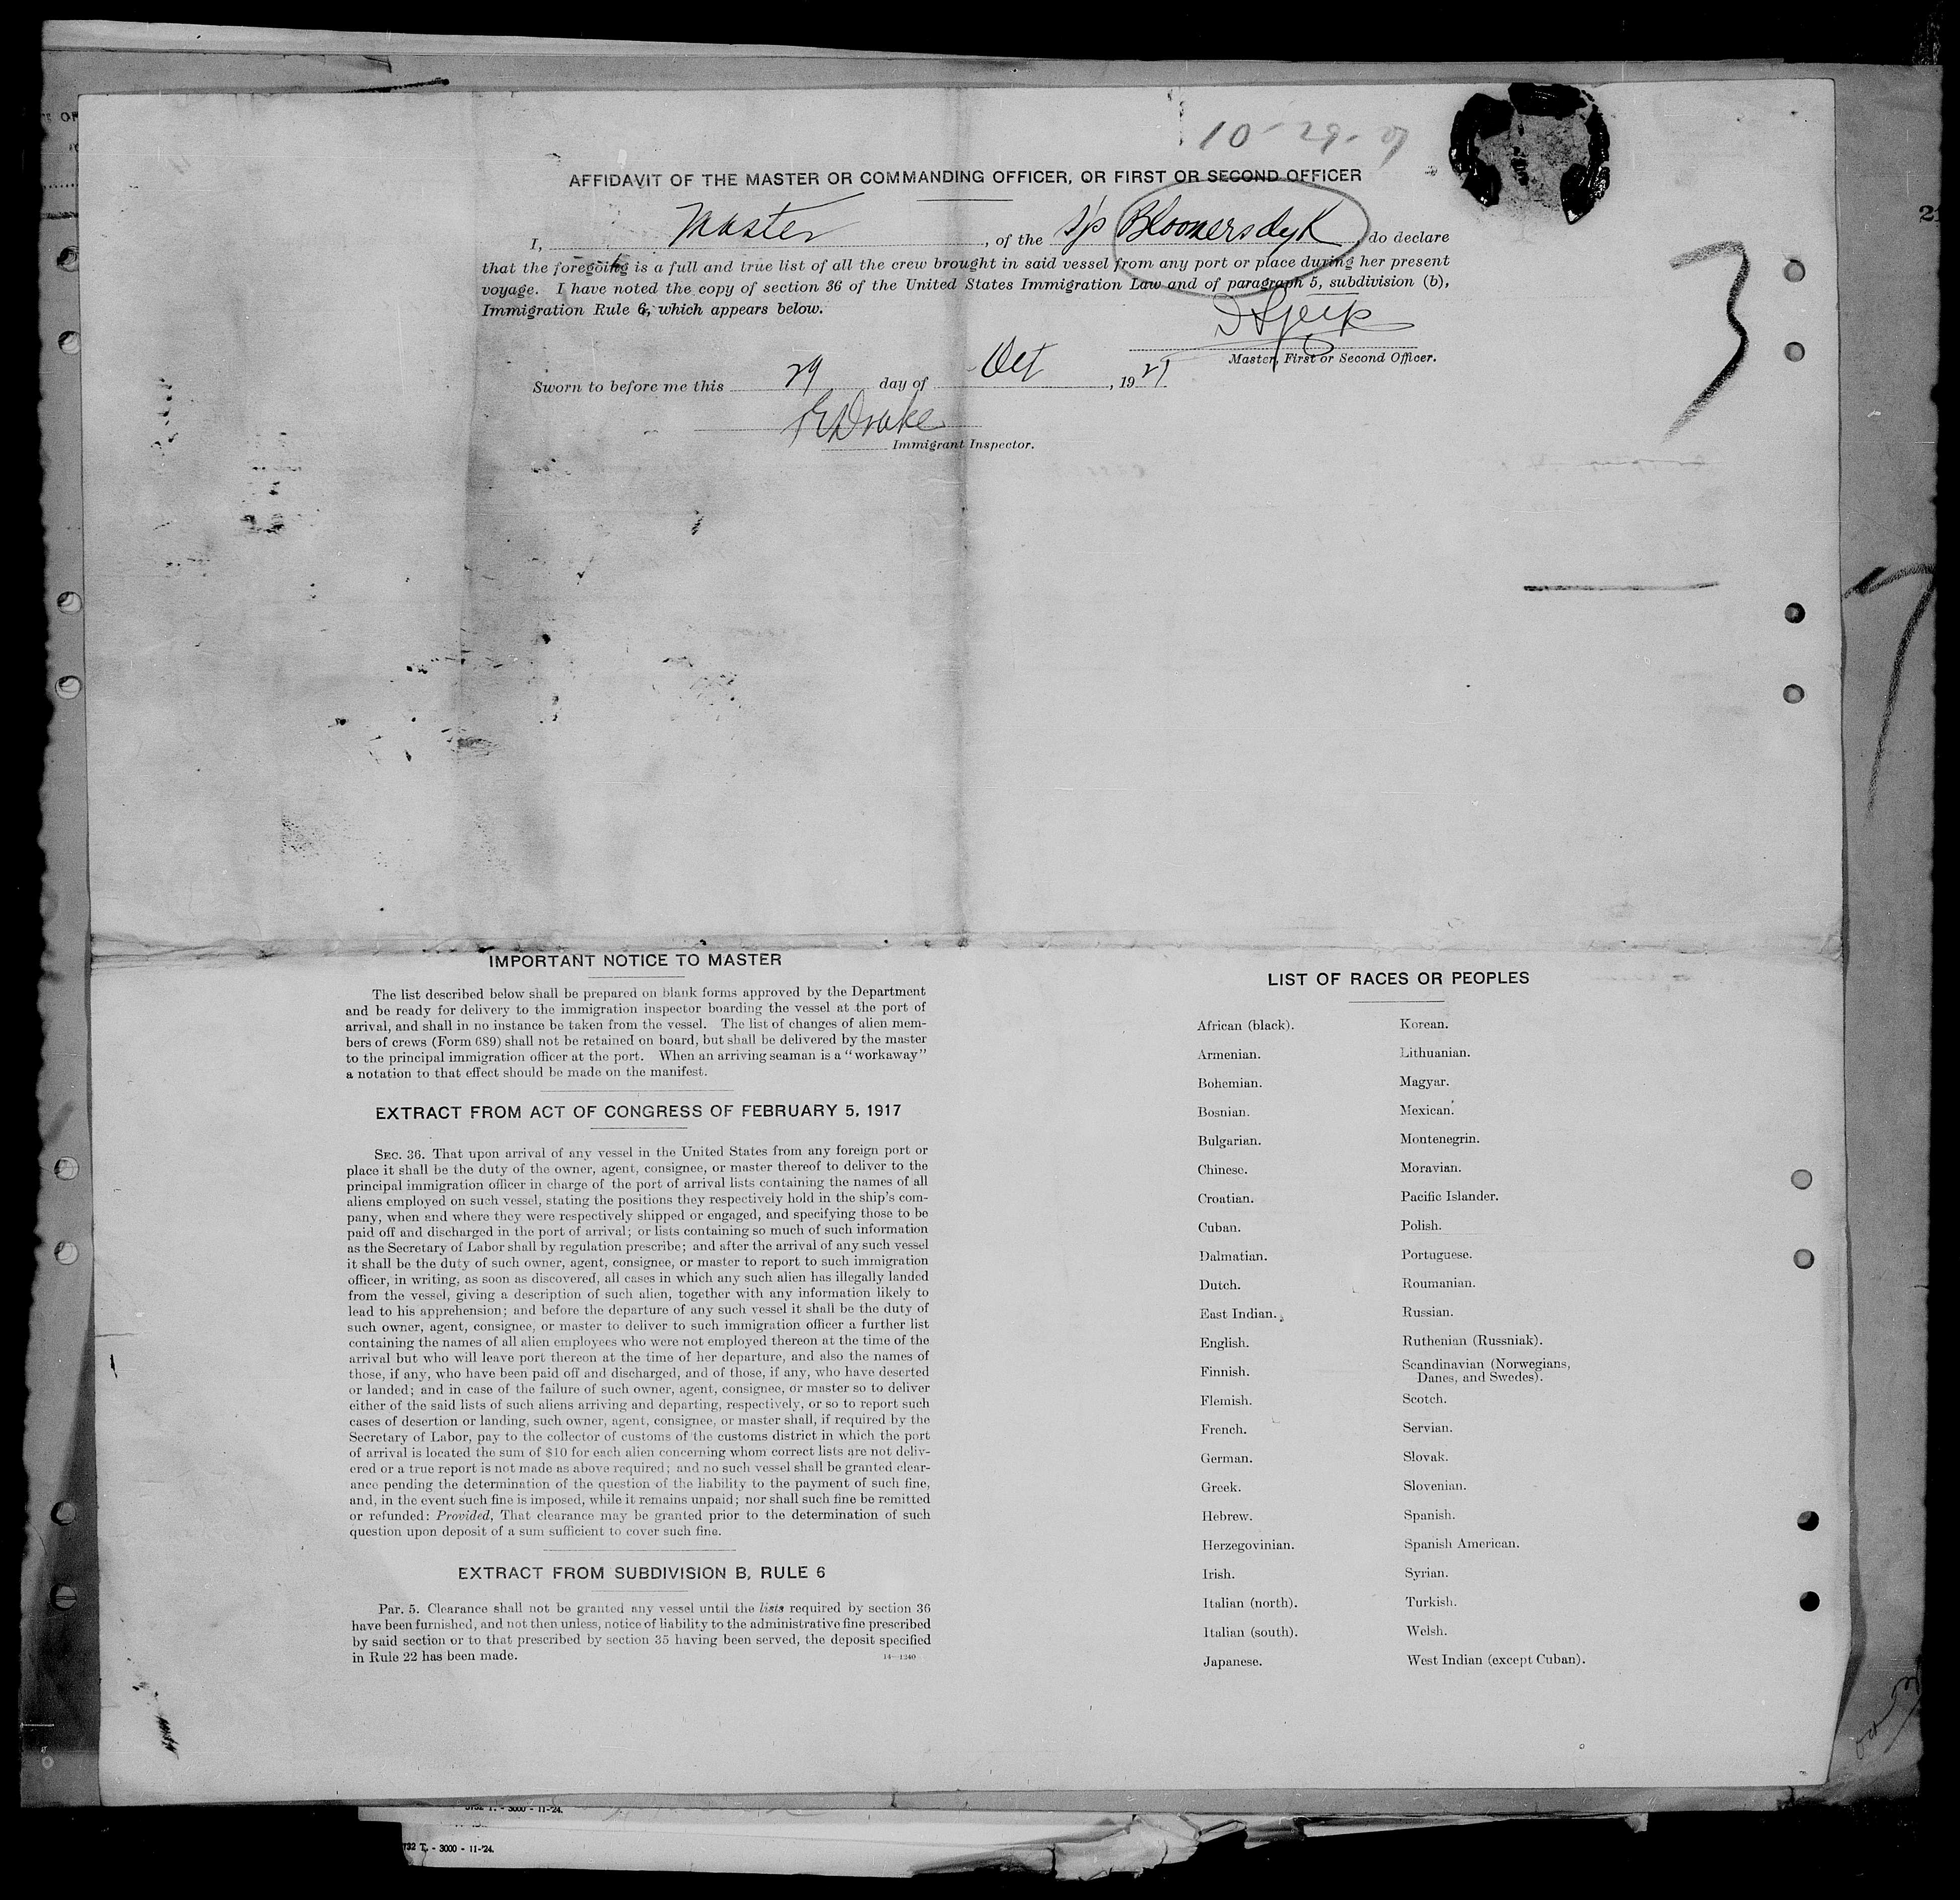 10-29-
AFFIDAVIT OF THE MASTER OR COMMANDING OFFICER, OR FIRST OR SECOND OFFICER
I, Master, of the s/s Bloomersdyk, do declare
that the foregoing is a full and true list of all the crew brought in said vessel from any port or place during her present
voyage. I have noted the copy of section 36 of the United States Immigration Law and of paragraph 5, subdivision (b),
Immigration Rule 6, which appears below.
Master, First or Second Officer.
Sworn to before me this 29 day of Oct, 19
Drake
Immigrant Inspector.
3
21
7
IMPORTANT NOTICE TO MASTER
The list described below shall be prepared on blank forms approved by the Department
and be ready for delivery to the immigration inspector boarding the vessel at the port of
arrival, and shall in no instance be taken from the vessel. The list of changes of alien mem-
bers of crews (Form 689) shall not be retained on board, but shall be delivered by the master
to the principal immigration officer at the port. When an arriving seaman is a "workaway"
a notation to that effect should be made on the manifest.
EXTRACT FROM ACT OF CONGRESS OF FEBRUARY 5, 1917
SEC. 36. That upon arrival of any vessel in the United States from any foreign port or
place it shall be the duty of the owner, agent, consignee, or master thereof to deliver to the
principal immigration officer in charge of the port of arrival lists containing the names of all
aliens employed on such vessel, stating the positions they respectively hold in the ship's com-
pany, when and where they were respectively shipped or engaged, and specifying those to be
paid off and discharged in the port of arrival; or lists containing so much of such information
as the Secretary of Labor shall by regulation prescribe; and after the arrival of any such vessel
it shall be the duty of such owner, agent, consignee, or master to report to such immigration
officer, in writing, as soon as discovered, all cases in which any such alien has illegally landed
from the vessel, giving a description of such alien, together with any information likely to
lead to his apprehension; and before the departure of any such vessel it shall be the duty of
such owner, agent, consignee, or master to deliver to such immigration officer a further list
containing the names of all alien employees who were not employed thereon at the time of the
arrival but who will leave port thereon at the time of her departure, and also the names of
those, if any, who have been paid off and discharged, and of those, if any, who have deserted
or landed; and in case of the failure of such owner, agent, consignee, or master so to deliver
either of the said lists of such aliens arriving and departing, respectively, or so to report such
cases of desertion or landing, such owner, agent, consignee, or master shall, if required by the
Secretary of Labor, pay to the collector of customs of the customs district in which the port
of arrival is located the sum of $10 for each alien concerning whom correct lists are not deliv-
ered or a true report is not made as above required; and no such vessel shall be granted clear-
ance pending the determination of the question of the liability to the payment of such fine,
and, in the event such fine is imposed, while it remains unpaid; nor shall such fine be remitted
or refunded: Provided, That clearance may be granted prior to the determination of such
question upon deposit of a sum sufficient to cover such fine.
EXTRACT FROM SUBDIVISION B, RULE 6
Par. 5. Clearance shall not be granted any vessel until the lists required by section 36
have been furnished, and not then unless, notice of liability to the administrative fine prescribed
by said section or to that prescribed by section 35 having been served, the deposit specified
in Rule 22 has been made.
14-1240
LIST OF RACES OR PEOPLES
African (black).
Armenian.
Bohemian.
Bosnian.
Bulgarian.
Chinese.
Croatian.
Cuban.
Dalmatian.
Dutch.
East Indian.
English.
Finnish.
Flemish.
French.
German.
Greek.
Hebrew.
Herzegovinian.
Irish.
Italian (north).
Italian (south).
Japanese.
Korean.
Lithuanian.
Magyar.
Mexican.
Montenegrin.
Moravian.
Pacific Islander.
Polish.
Portuguese.
Roumanian.
Russian.
Ruthenian (Russniak).
Scandinavian (Norwegians,
Danes, and Swedes).
Scotch.
Servian.
Slovak.
Slovenian.
Spanish.
Spanish American.
Syrian.
Turkish.
Welsh.
West Indian (except Cuban).
3732 T. - 3000 - 11-'24.
732 T. - 3000 - 11-'24.